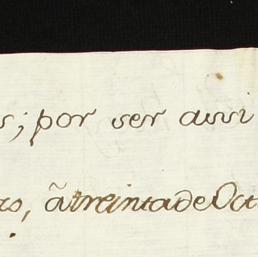 s; por ser assi
to, ã treinta de Oct